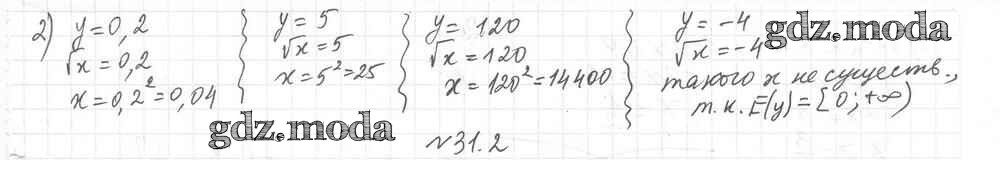 2) y = 0,2
√x = 0,2
x = 0,2² = 0,04
y = 5
√x = 5
x = 5² = 25
y = 120
√x = 120
x = 120² = 14400
y = -4
√x = -4
такого x не существ.,
т.к. E(y) = [0; +∞)
gdz.moda
gdz.moda
№31.2